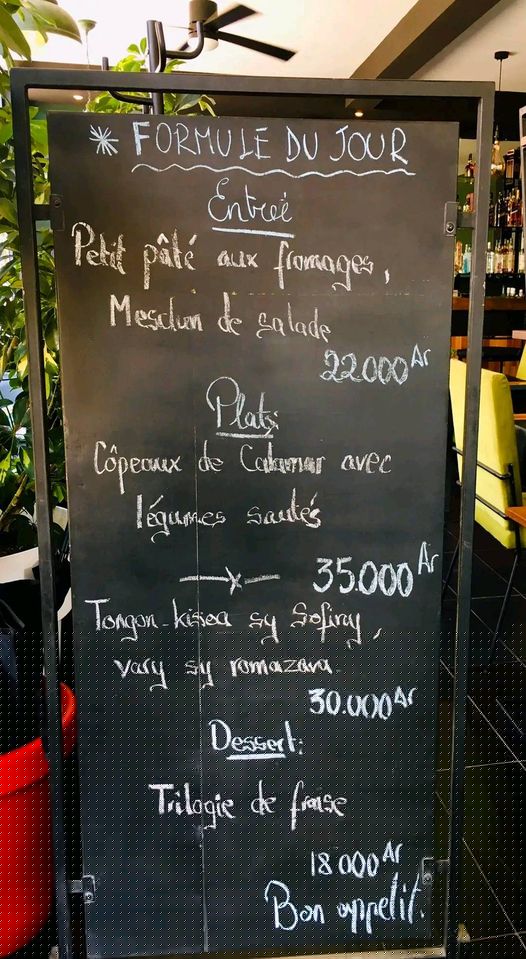 * FORMULE DU JOUR
Entrée
Petit pâté aux fromages,
Mesclun de salade
22.000 Ar
Plats:
Côpeaux de Calamar avec
légumes sautés
35.000 Ar
Tongon-kisoa sy Sofiny,
vary sy romazava.
30.000 Ar
Dessert:
Trilogie de fraise
18 000 Ar
Bon appetit.